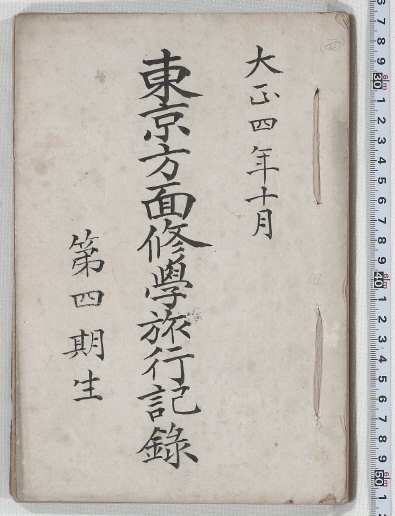 大正四年十月
東京方面修學旅行記錄
第四期生
(四)
6 7 8 9 30 1 2 3 4 5 6 7 8 9 40 1 2 3 4 5 6 7 8 9 50 1